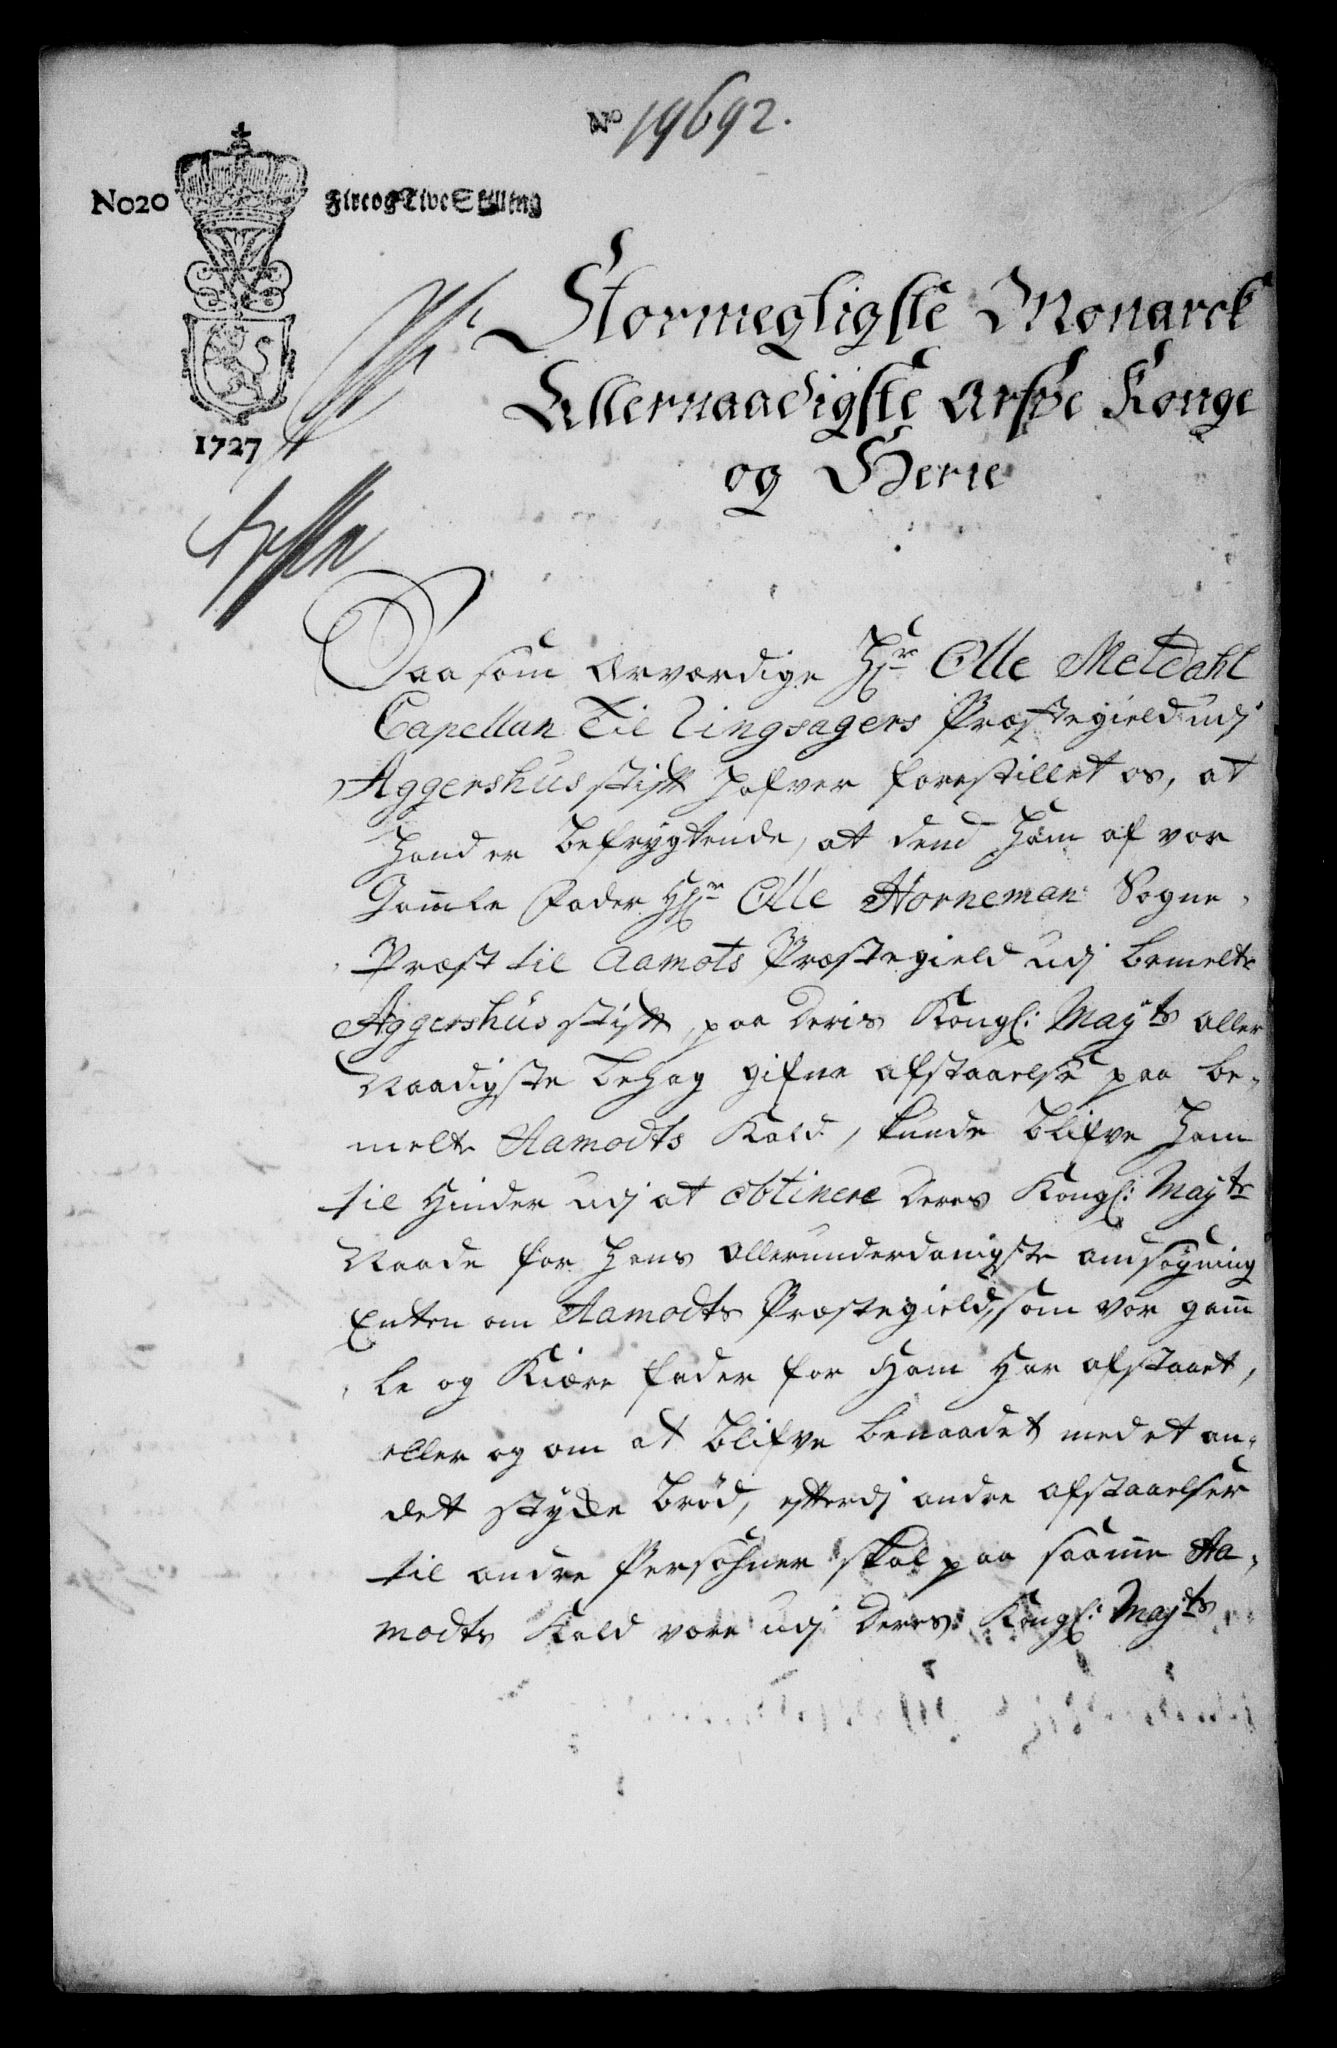 No 19692.
No20 Fire og Tive Skilling
1727
Stormegtigste Monarck
Allernaadigste Arfve Konge
og Herre
Saasom Ærværdige Hr Olle Meldahl
Capellan Til Ringsagers Præstegield udj
Aggershus stift hafver forestillet os, at
hand er befrygtende, at dend ham af vor
Gamle Fader Hr Olle Horneman Sogne-
Præst til Aamots Præstegield udj bemelte
Aggershus stift, paa Deris Kongl: Mayts aller
Naadigste behag gifne afstaaelse paa be-
melte Aamodts Kald, kunde blifve ham
til Hinder udj at obtinere Deres Kongl: Mayts
Naade for hans allerunderdanigste andsøgning
Enten om Aamodts Præstegield, som vor gam
le og Kiære fader for ham har afstaaet,
eller og om at blifve benaadet med et an-
det stycke brød, efterdj andre afstaaelser
til andre Persohner skal paa samme Aa-
modts Kald være udj Deres Kongl: Mayts